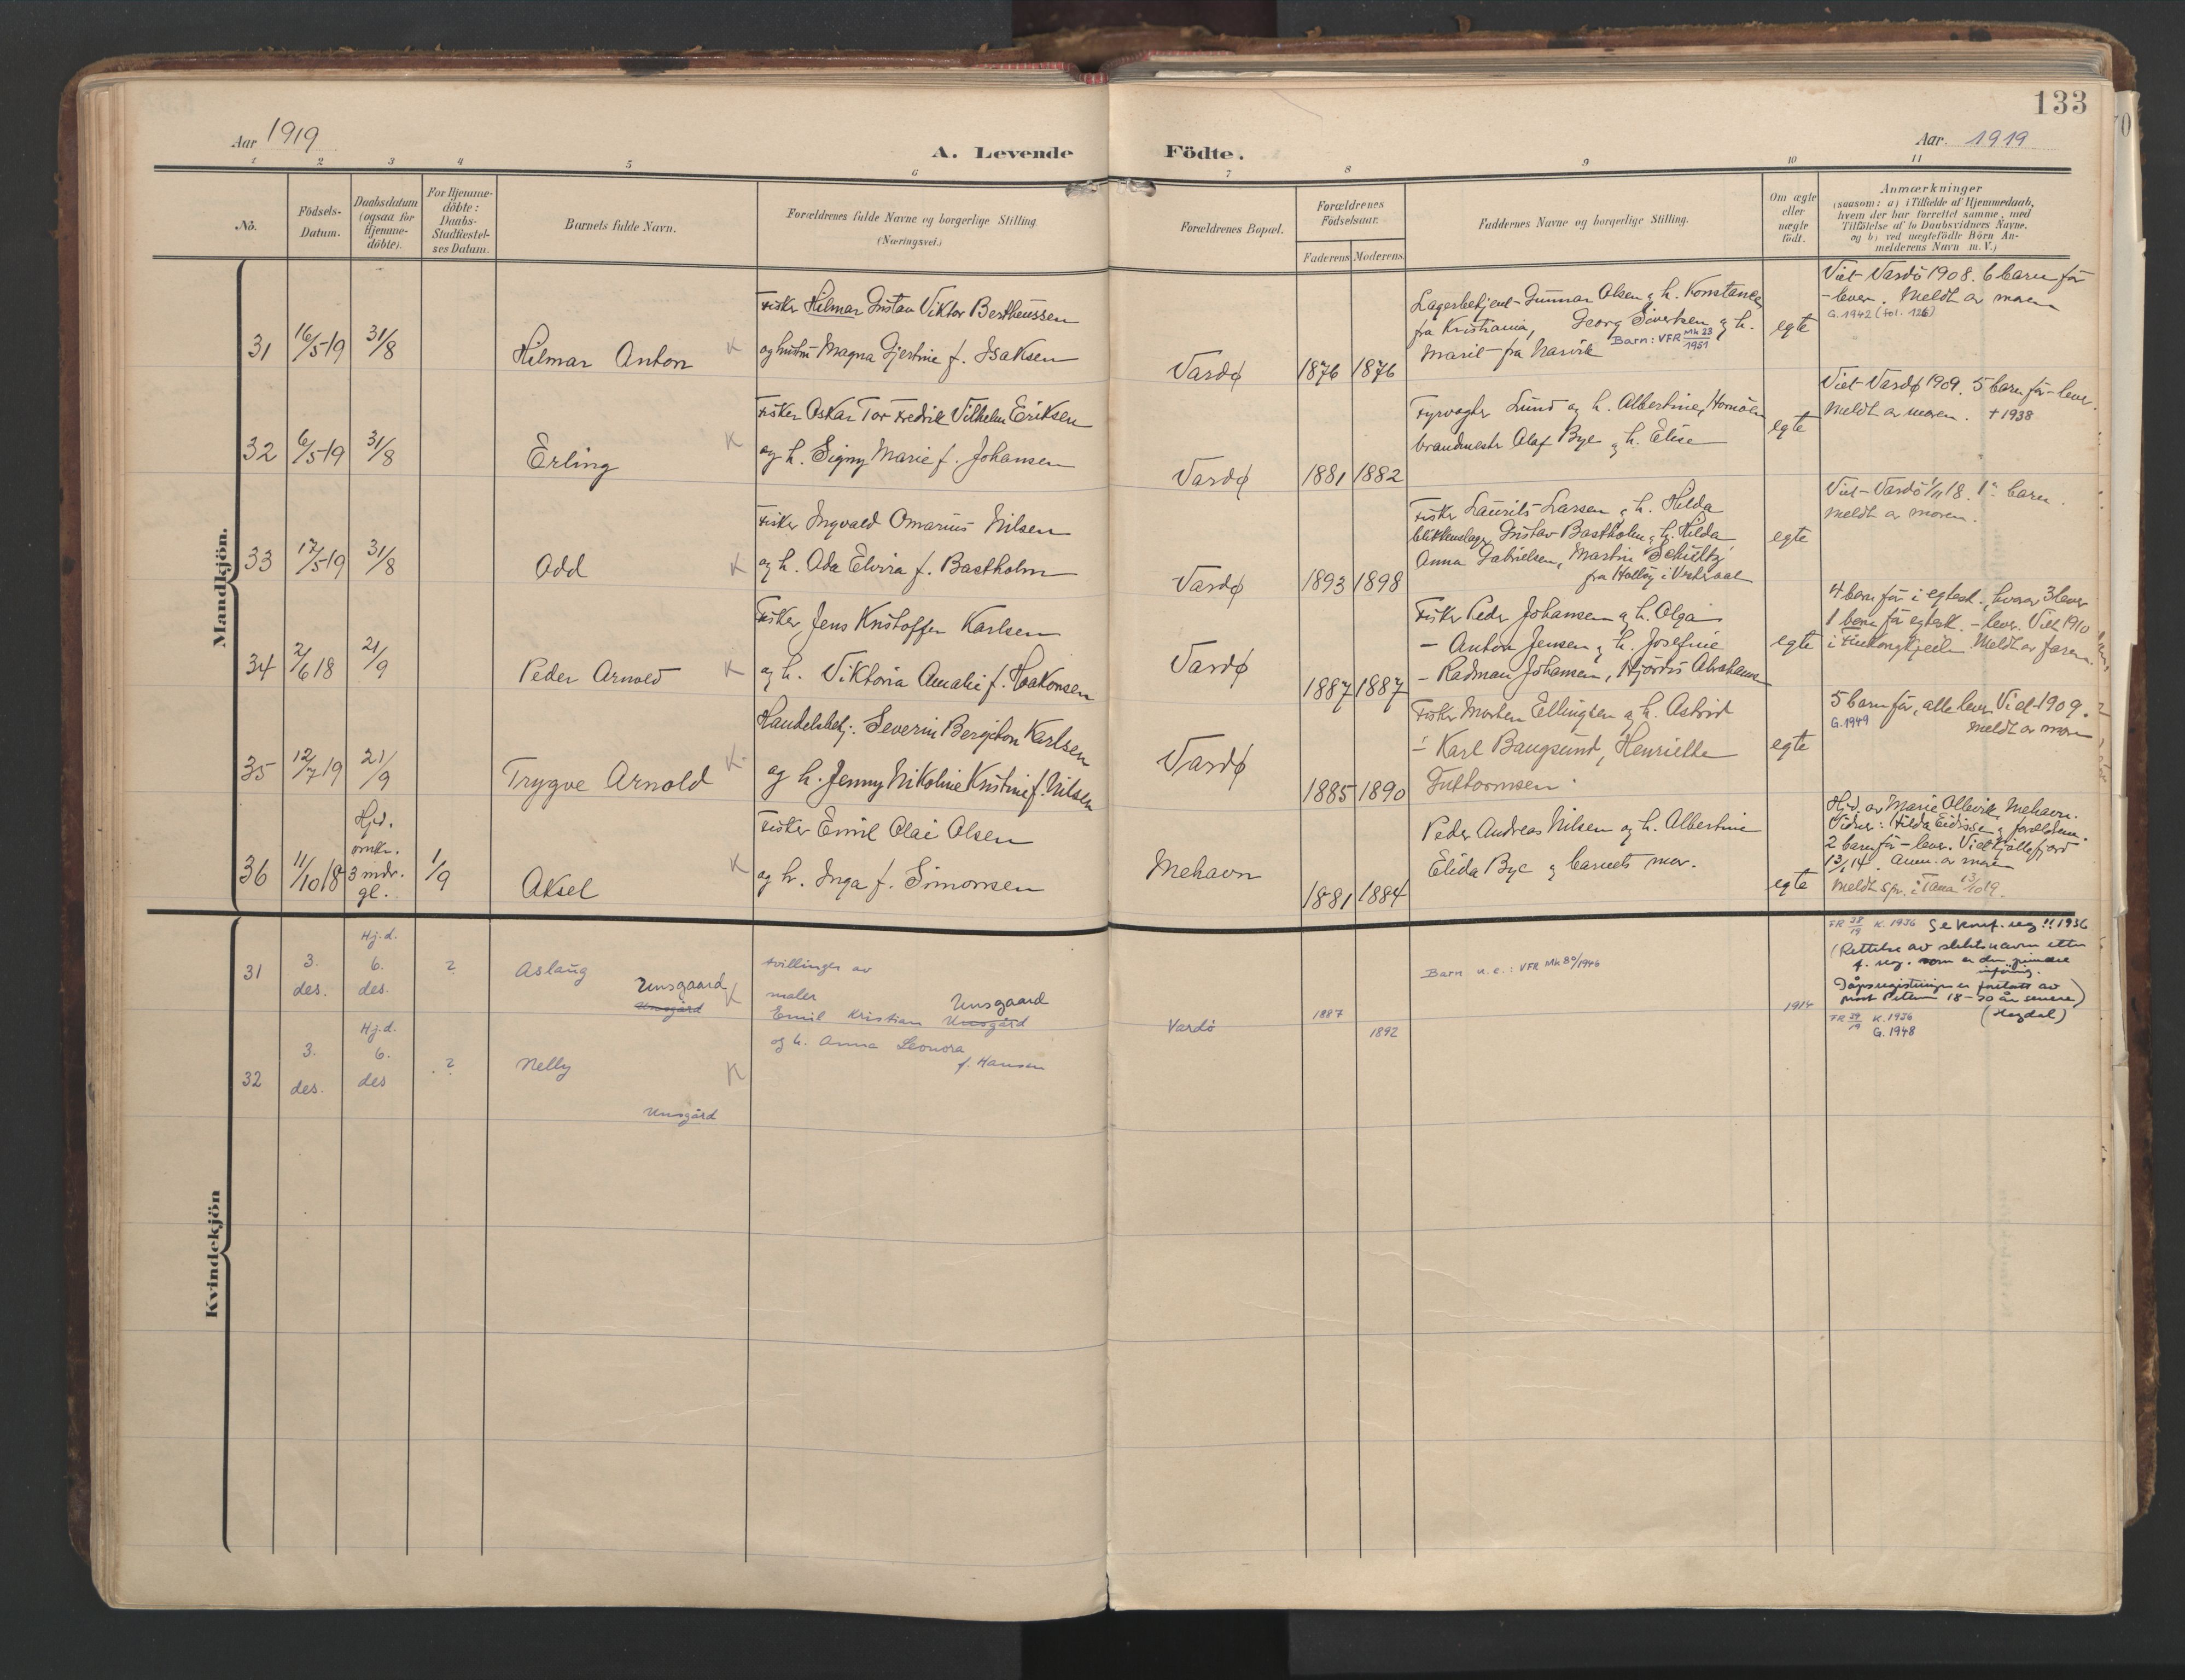 133
Aar 1919
A. Levende Födte.
Aar. 1919
1 2 3 4 5 6 7 8 9 10 11
No.
Födsels-
Datum.
Daabsdatum
(ogsaa for
Hjemme-
döbte).
For Hjemme-
döbte:
Daabs-
Stadfæstel-
ses Datum.
Barnets fulde Navn.
Forældrenes fulde Navne og borgerlige Stilling
(Næringsvei.)
Forældrenes Bopæl.
Forældrenes
Födselsaar.
Faderens Moderens
Faddernes Navne og borgerlige Stilling.
Om ægte
eller
uægte
født.
Anmærkninger
(saasom: a) i Tilfælde af Hjemmedaab,
hvem der har forrettet samme, med
Tilföielse af to Daabsvidners Navne,
og b) ved uægtefödte Börn An-
melderens Navn m. V.)
Mandkjön.
31 16/5 19 31/8
Hilmar Anton K
Fisker Hilmar Gustav Viktor Bertheussen
og hustru Magna Gjertine f. Isaksen
Vardø 1876 1876
Lagerbetjent Gunnar Olsen og h. Konstance
fra Kristiania, Georg Sivertsen og h.
Marit fra Narvik
Barn: VFR Mk 23/1951
egte
Viet Vardö 1908. 6 barn før
- lever. Meldt av moren
G. 1942 (fol. 126)
32 6/5 19 31/8
Erling K
Fisker Oskar Tor Fredrik Vilhelm Eriksen
og h. Signy Marie f. Johansen
Vardø 1881 1882
Fyrvogter Lund og h. Albertine, Hornöen
brandmestr Olaf Bye og h. Elise
egte
Viet Vardø 1909. 5 barn før - lever.
Meldt av moren. + 1938
33 17/5 19 31/8
Odd K
Fisker Ingvald Omarius Nilsen
og h. Oda Elvira f. Bastholm
Vardø 1893 1898
Fisker Laurits Larsen og h. Hilda
blikkenslager Gustav Bastholm og h. Hilda
Anna Gabrielsen, Martin Schultz
egte
Viet Vardö 1/11 18. 1ste barn.
Meldt av moren.
34 2/6 18 21/9
Peder Arnold K
Fisker Jens Kristoffer Karlsen
og h. Viktoria Amalie f. Haakonsen
Vardø 1887 1887
Fisker Peder Johansen og h. Olga
- Anton Jensen og h. Josefine
- Radman Johansen, Hjördis Abrahamsen
egte
4 barn før i egtesk., hvorav 3 lever
1 barn før egtesk. - lever. Viet 1910
i Finkongkjeilen Meldt av faren.
35 12/7 19 21/9
Trygve Arnold K
Handelsbetj. Severin Bergiton Karlsen
og h. Jenny Nikoline Kristine f. Nilsen
Vardø 1885 1890
Fisker Morten Ellingsen og h. Astrid
- Karl Baugsund, Henriette
Guttormsen
egte
5 barn før, alle lever. Viet 1909.
G. 1949 Meldt av moren
36 11/10 18
Hjd.
omkr.
3 mdr.
gl.
1/9
Aksel K
Fisker Emil Olai Olsen
og h. Inga f. Simonsen
Mehavn 1881 1884
Peder Andreas Nilsen og h. Albertine
Elida Bye og barnets mor.
egte
Hjd. av Marie Ollevik, Mehavn.
Vidner: Hilda Eidissen og forældrene.
2 barn før - lever. Viet Kjöllefjord
13/1 14. Anm. av moren
Meldt spr. i Tana 13/10 19.
Kvindekjön
31
3.
des.
Hj.d.
6.
des.
?
Aslaug
Unsgaard
Unsgård K
tvillinger av
maler Unsgaard
Emil Kristian Unsgård
og h. Anna Leonora
f. Hansen
Vardö 1887 1892
Barn u.e.: VFR Mk 80/1946
1914
FR 38/19 K. 1936 Se konf. reg!! 1936
(Rettelse av slektsnavn etter
f. reg. som er den primære
innføring.
Dåpsregistringen er foretatt av
prost Petersen 18-20 år senere)
(Hegdal)
FR 39/19 K. 1936
G. 1948
32
3.
des.
Hj.d.
6.
des
?
Nelly K
Unsgård